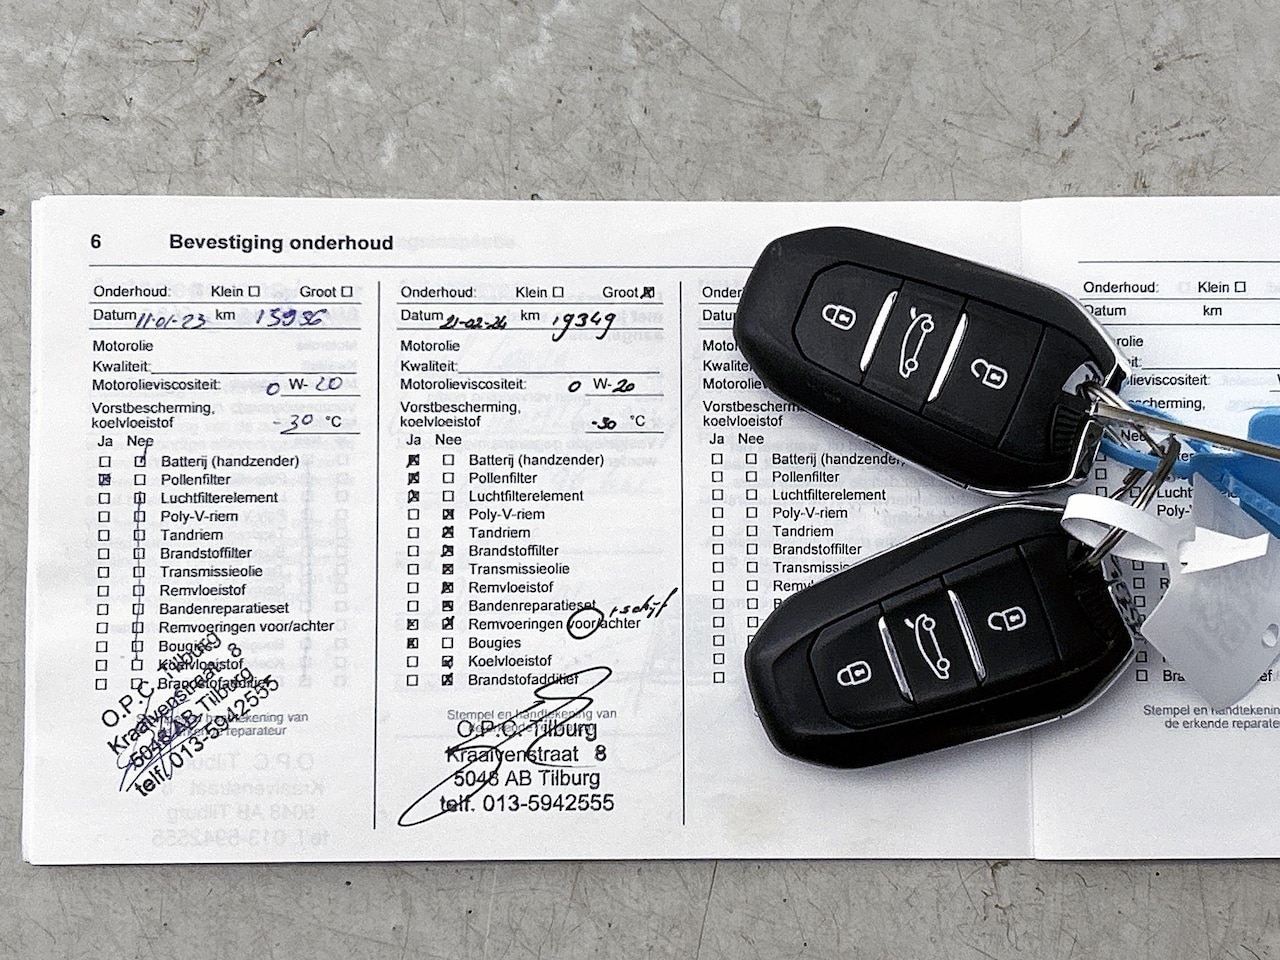 6 Bevestiging onderhoud
Onderhoud: Klein Groot
Datum 11-01-23 km 15936
Motorolie
Kwaliteit:
Motorolieviscositeit: 0 W-20
Vorstbescherming,
koelvloeistof -30 °C
Ja Nee
Batterij (handzender)
Pollenfilter
Luchtfilterelement
Poly-V-riem
Tandriem
Brandstoffilter
Transmissieolie
Remvloeistof
Bandenreparatieset
Remvoeringen voor/achter
Bougies
Koelvloeistof
Brandstofadditief
Stempel en handtekening van
de erkende reparateur
O.P.C. Tilburg
Kraaivenstraat 8
5048 AB Tilburg
telf. 013-5942555
Onderhoud: Klein Groot
Datum 21-02-24 km 19349
Motorolie
Kwaliteit:
Motorolieviscositeit: 0 W-20
Vorstbescherming,
koelvloeistof -30 °C
Ja Nee
Batterij (handzender)
Pollenfilter
Luchtfilterelement
Poly-V-riem
Tandriem
Brandstoffilter
Transmissieolie
Remvloeistof
Bandenreparatieset
Remvoeringen voor/achter + schijf
Bougies
Koelvloeistof
Brandstofadditief
Stempel en handtekening van
de erkende reparateur
O.P.C. Tilburg
Kraaivenstraat 8
5048 AB Tilburg
telf. 013-5942555
Ond
Datu
Motor
Kwalite
Motoro
Vorstb
koelvlo
Ja Nee
Batterij (handzender)
Pollenfilter
Luchtfilterelement
Poly-V-riem
Tandriem
Brandstoffilter
Transmissie
Remv
Onderhoud: Klein
Datum km
rolie
eit:
olieviscositeit:
scherming,
Nee
Lucht
Poly-V
Bra tief
Stempel en handteken
de erkende reparate